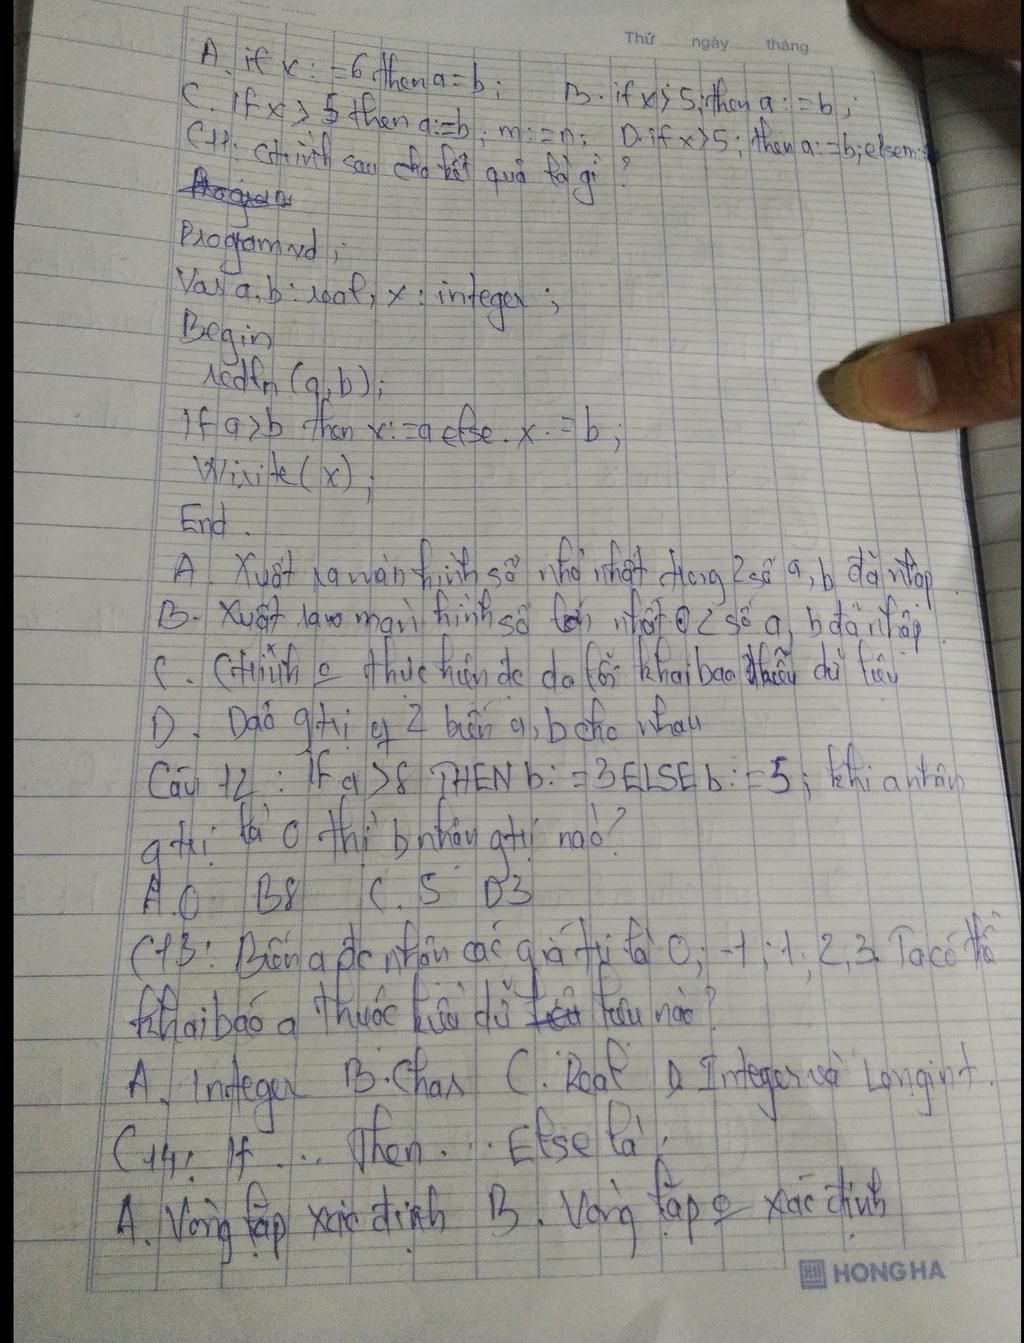 Thứ ngày tháng
A. if x:=6 then a=b; B. if x>5; then a:=b;
C. If x>5 then a:=b; m:=n; D. if x>5; then a:=b; else m:
C11: Ctrình sau cho kết quả là gì?
Program vd;
Var a,b: real, x: integer;
Begin
redln (a,b);
If a>b then x:=a else x:=b;
Write(x);
End.
A. Xuất ra màn hình số nhỏ nhất trong 2 số a, b đã nhập
B. Xuất ra màn hình số lớn nhất 2 số a, b đã nhập
C. Ctrình thực hiện đc do lỗi khai báo thiếu dữ liệu
D. Đảo gtrị 2 biến a, b cho nhau
Câu 12: If a>8 THEN b:=3 ELSE b:=5; khi a nhận
gtrị là 0 thì b nhận gtrị nào?
A. 0 B 8 C. 5 D 3
C13: Biến a đc nhận các giá trị là 0; -1; 1; 2, 3. Ta có thể
khai báo a thuộc kiểu dữ liệu nào?
A. Integer B. Char C. Real D. Integer và Longint.
C14: If ... Then ... Else là:
A. Vòng lặp xác định B. Vòng lặp xác định
HONG HA